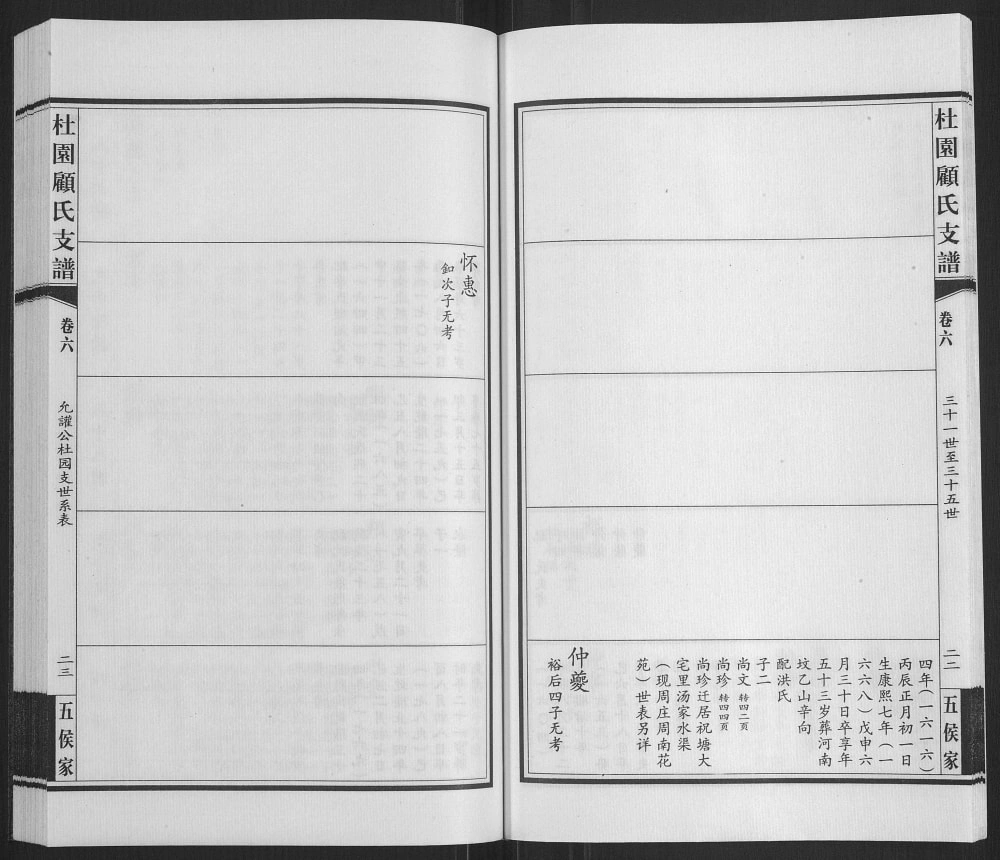 杜園顧氏支譜
卷六
三十一世至三十五世
二二
五侯家
四年(一六一六)
丙辰正月初一日
生康熙七年(一
六六八)戊申六
月三十日卒享年
五十三岁葬河南
坟乙山辛向
配洪氏
子二
尚文 转四二页
尚珍 转四四页
尚珍迁居祝塘大
宅里汤家水渠
(现周庄周南花
苑)世表另详
仲夔
裕后四子无考
怀惠
釦次子无考
杜園顧氏支譜
卷六
允讙公杜园支世系表
二三
五侯家